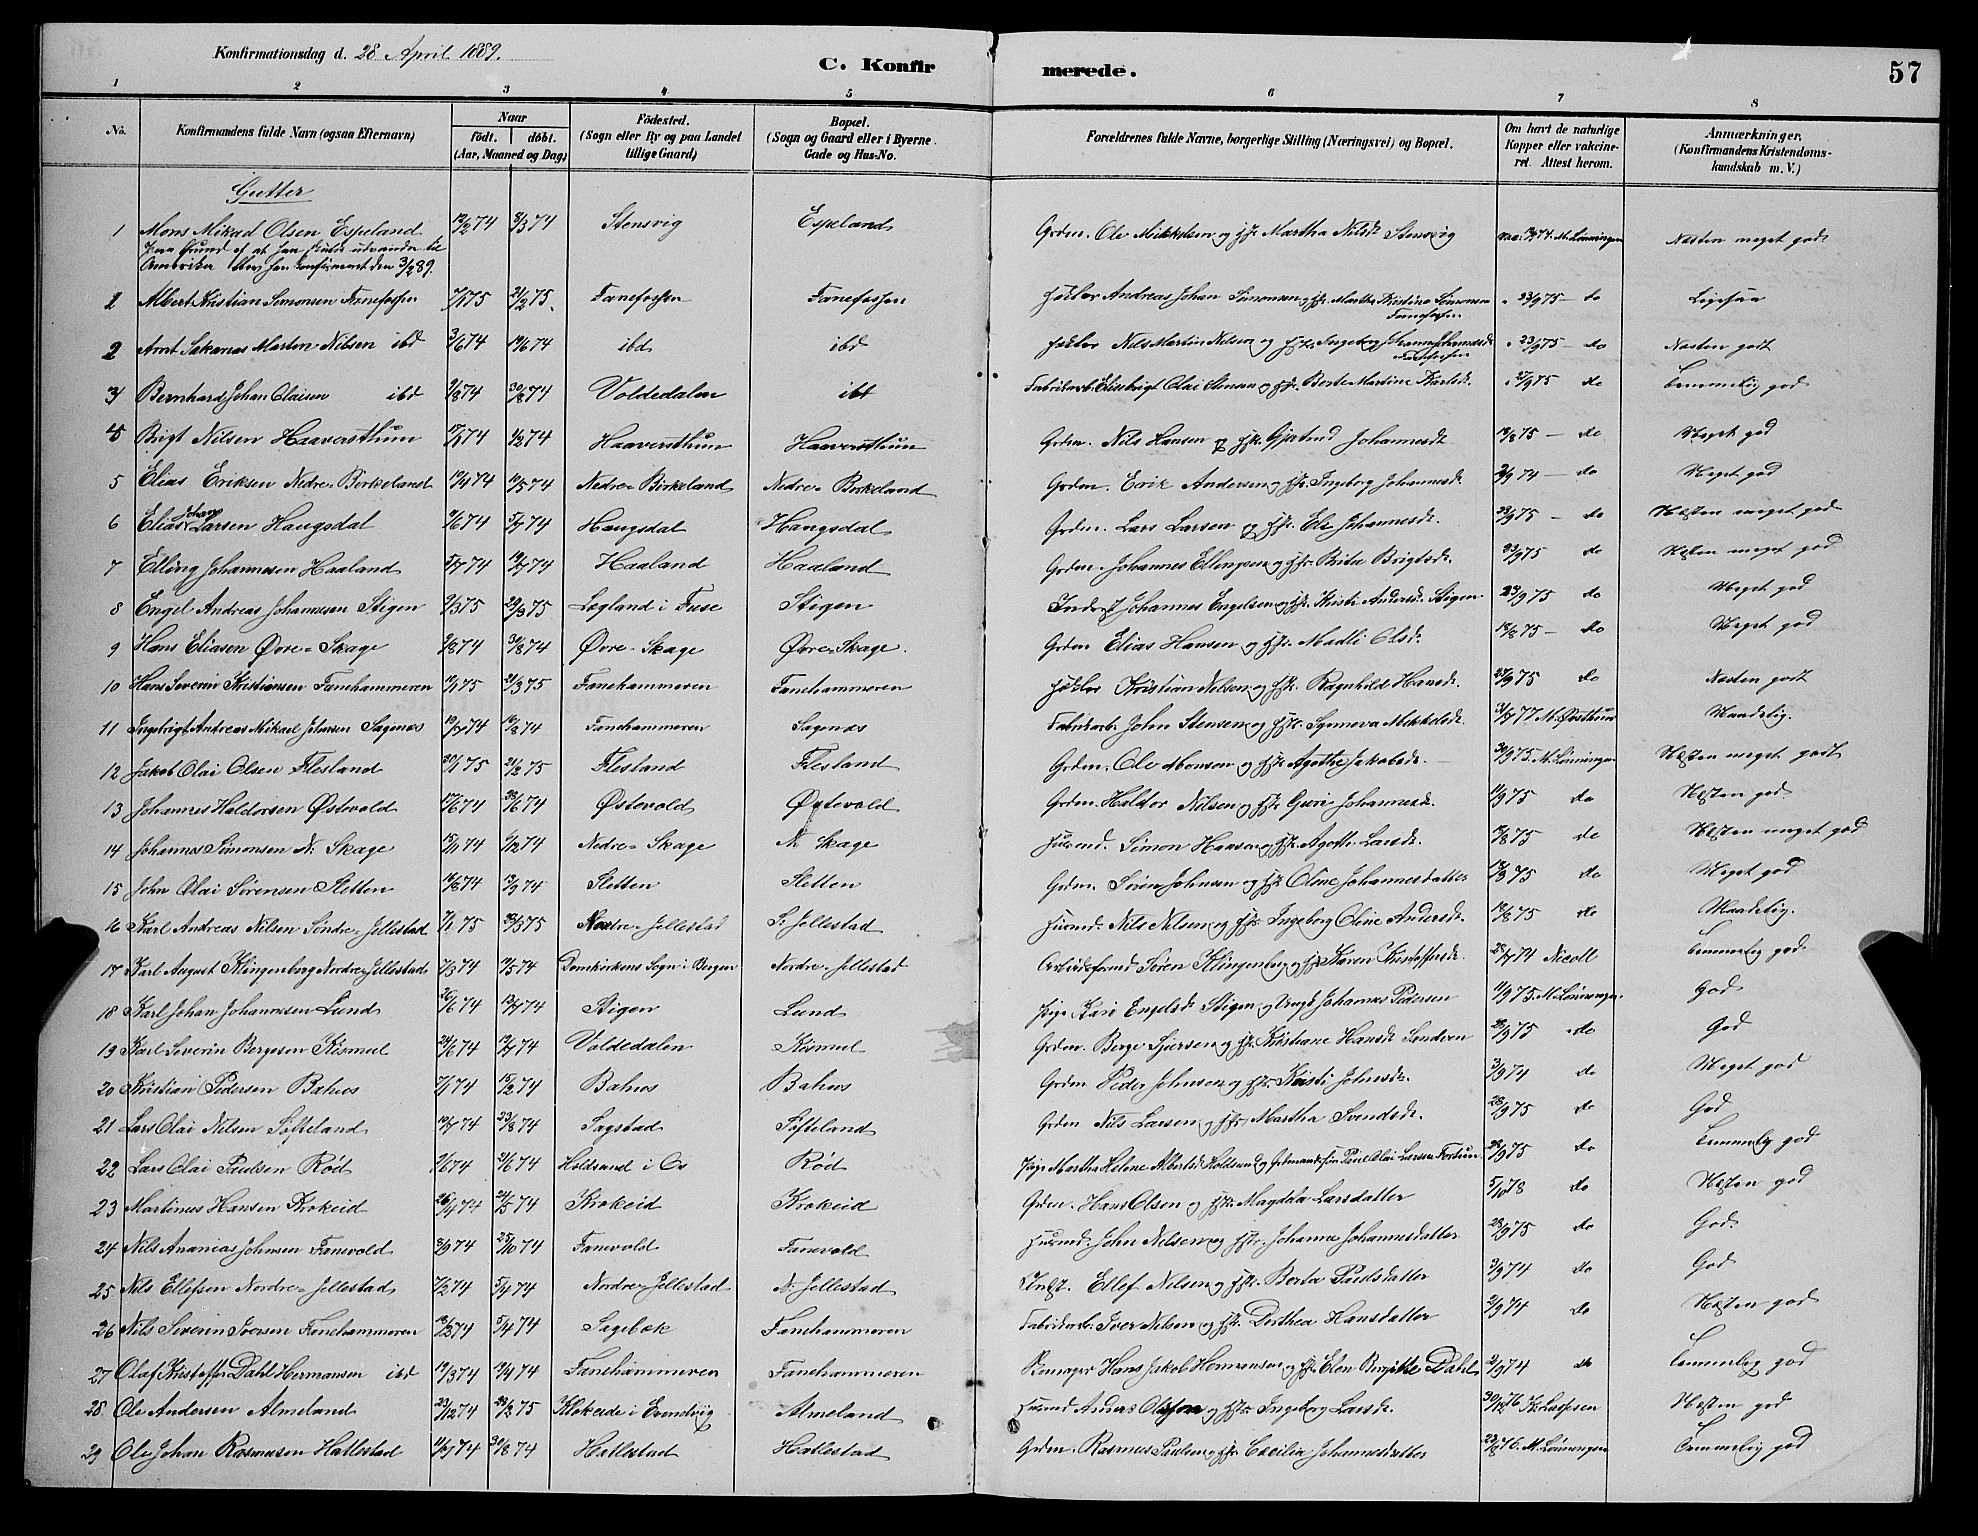 Konfirmationsdag d. 28 April 1889.
C. Konfirmerede.
57
1 2 3 4 5 6 7 8
No.
Konfirmandens fulde Navn (ogsaa Efternavn)
Naar
födt. döbt.
(Aar, Maaned og Dag)
Födested.
(Sogn eller By og paa Landet
tillige Gaard)
Bopæl.
(Sogn og Gaard eller i Byerne
Gade og Hus-No.
Forældrenes fulde Navne, borgerlige Stilling (Næringsvei) og Bopæl.
Om havt de naturlige
Kopper eller vakcine-
ret. Attest herom.
Anmærkninger.
(Konfirmandens Kristendoms-
kundskab m. V.)
Gutter
1 Mons Mikal Olsen Espeland 8/3 74 Stensvig Espeland Grdm. Ole Mikkelsen og Martha Nilsdr Stensvig M. Lönningen Næsten meget godt
paa Grund af at han skulde udvandre til
Amerika blev han konfirmeret den 3/2 89.
2 Albert Kristian Simonsen Fanefossen 21/2 75 Fanefossen Fanefossen Andreas Johan Simonsen og Martha Kristine Simonsen Fanefossen 23/9 75 do Ligesaa
2 Arnt Sakarias Martin Nilsen ibd 3/6 74 14/6 74 ibd ibd Nils Martin Nilsen og Ingeborg Fanefossen 23/9 75 do Næsten godt
3 Bernhard Johan Olaisen ibd 30/8 74 Voldedalen ibd Olai og Berte Martine 27/9 75 do Temmelig god
4 Brigt Nilsen Haaversthun Haaversthun Haaversthun Grdm. Nils Hansen og Gjertrud Johannesdr. 18/8 75 do Meget god
5 Elias Eriksen Nedre-Birkeland 12/4 74 10/5 74 Nedre-Birkeland Nedre-Birkeland Grdm. Erik Andersen og Ingeborg Johannesdr. 2/9 74 do Meget god
6 Elias Johan Larsen Haugsdal 5/7 74 Haugsdal Haugsdal Grdm. Lars Larsen og Eli Johannesdr. 23/9 75 do Næsten meget god
7 Elling Johannesen Haaland 5/7 74 19/7 74 Haaland Haaland Grdm. Johannes Ellingsen og Brita Brigtsdr. 23/9 75 do Næsten meget god
8 Engel Andreas Johannesen Stigen 9/3 75 29/3 75 Legland i Fuse Stigen Inderst Johannes Engelsen og Kristi Andersdr. Stigen 23/9 75 do Meget god
9 Hans Eliasen Øvre-Skage 9/8 74 30/8 74 Øvre-Skage Øvre-Skage. Grdm Elias Hansen og Madli Olsdr. 18/8 75 do Meget god
10 Hans Severin Kristiansen Fanehammeren 21/3 75 Fanehammeren Fanehammeren Kristian Nilsen og Ragnhilde Hansdr. 27/9 75 do Næsten godt
11 Ingebrigt Andreas Mikael Johnsen Sagenæs 19/7 74 16/8 74 Fanehammeren Sagenæs Fabrikarb. John Stensen og Synneva Mikkelsdr. 31/7 77 Maadelig.
12 Jakob Olai Olsen Flesland 30/1 75 21/2 75 Flesland Flesland Grdm. Ole Monsen og Agathe Jakobsdr. 30/9 75. M. Lönningen Næsten meget godt
13 Johannes Haldorsen Østevold 17/6 74 28/6 74 Østevold Østevold Grdm. Haldor Nilsen og Guri Johannesdr. 11/9 75 do Næsten god.
14 Johannes Simonsen N. Skage 15/11 74 6/12 74 Nedre-Skage N. Skage Husmd. Simon Hansen og Agathe Larsdr. 18/8 75 do Næsten meget god
15 John Olai Sørensen Sletten 16/8 74 13/9 74 Sletten Sletten Grdm. Søren Johnsen og Oline Johannesdatter do Meget god
16 Karl Andreas Nilsen Søndre-Jellestad 7/1 75 Søndre-Jellestad S. Jellestad Husmd. Nils Nilsen og Ingeborg Oline Andersdr. 18/8 75 do Maadelig.
17 Karl August Klingenberg Nordre-Jellestad 7/3 74 14/5 74 Domkirkens Sogn i Bergen Nordre-Jellestad Arbeidsformd Søren Klingenberg og Karen Kristoffersdr. 28/7 74 Nicoll Temmelig god.
18 Karl Johan Johannesen Lund 26/6 74 12/7 74 Stigen Lund Pige Kari Engelsdr Stigen og Ungk. Johannes Pedersen 11/9 75. M. Lönningen. God
19 Karl Severin Bergesen Kismul 28/6 74 12/7 74 Voldedalen Kismul Grdm. Berge og Kristiane Hansdr 28/9 75 do God
20 Kristian Pedersen Bahus 7/1 74 15/2 74 Bahus Bahus Grdm Peder Johnsen og Kristi Johnsdr. 3/9 74 do Meget god
21 Lars Olai Nilsen Søfteland 19/7 74 23/8 74 Sagstad Søfteland Grdm Nils Larsen og Martha Svendsdr. 28/9 75 do God
22 Lars Olai Paulsen Rød 21/6 74 Holdsund i Os Rød Pige Martha Helene Albertsdr Holdsund og Paul Olai Larsen Fortun. 28/9 75 do Temmelig god
23 Martinus Hansen Krokeid 26/4 74 24/5 74 Krokeid Krokeid Grdm. Hans Olsen og Magdala Larsdatter 5/10 78 do Næsten god
24 Nils Ananias Johnsen Fanevold 8/9 74 25/10 74 Fanevold Fanevold Husmd. John Nilsen og Johanna Johannesdatter 28/9 75 do God
25 Nils Ellefsen Nordre-Jellestad 7/2 74 5/4 74 Nordre-Jellestad N. Jellestad Inst. Ellef Nilsen og Berta Paulsdatter 3/9 74 do God
26 Nils Severin Iversen Fanehammeren 18/2 74 5/4 74 Sagebæk Fanehammeren Fabrikarb. Iver Nilsen og Dorthea Hansdatter 2/9 74 do Næsten god
27 Olaf Kristoffer Dahl Hermansen ibd 19/3 74 19/4 74 Fanehammeren Fanehammeren Hans Jakob Hermansen og Elen Bergitte Dahl 2/9 74 do Temmelig god
28 Ole Andersen Almeland 23/12 74 28/2 75 Klokeide i Evendvig Almeland Husmd Anders Olsson og Ingeborg Larsdr. Næsten god
29 Ole Johan Rasmusen Hatlestad 11/7 74 30/8 74 Hatlestad Hatlestad Grdm. Rasmus Paulsen og Cecilia Johannesdatter M. Lönningen Temmelig god